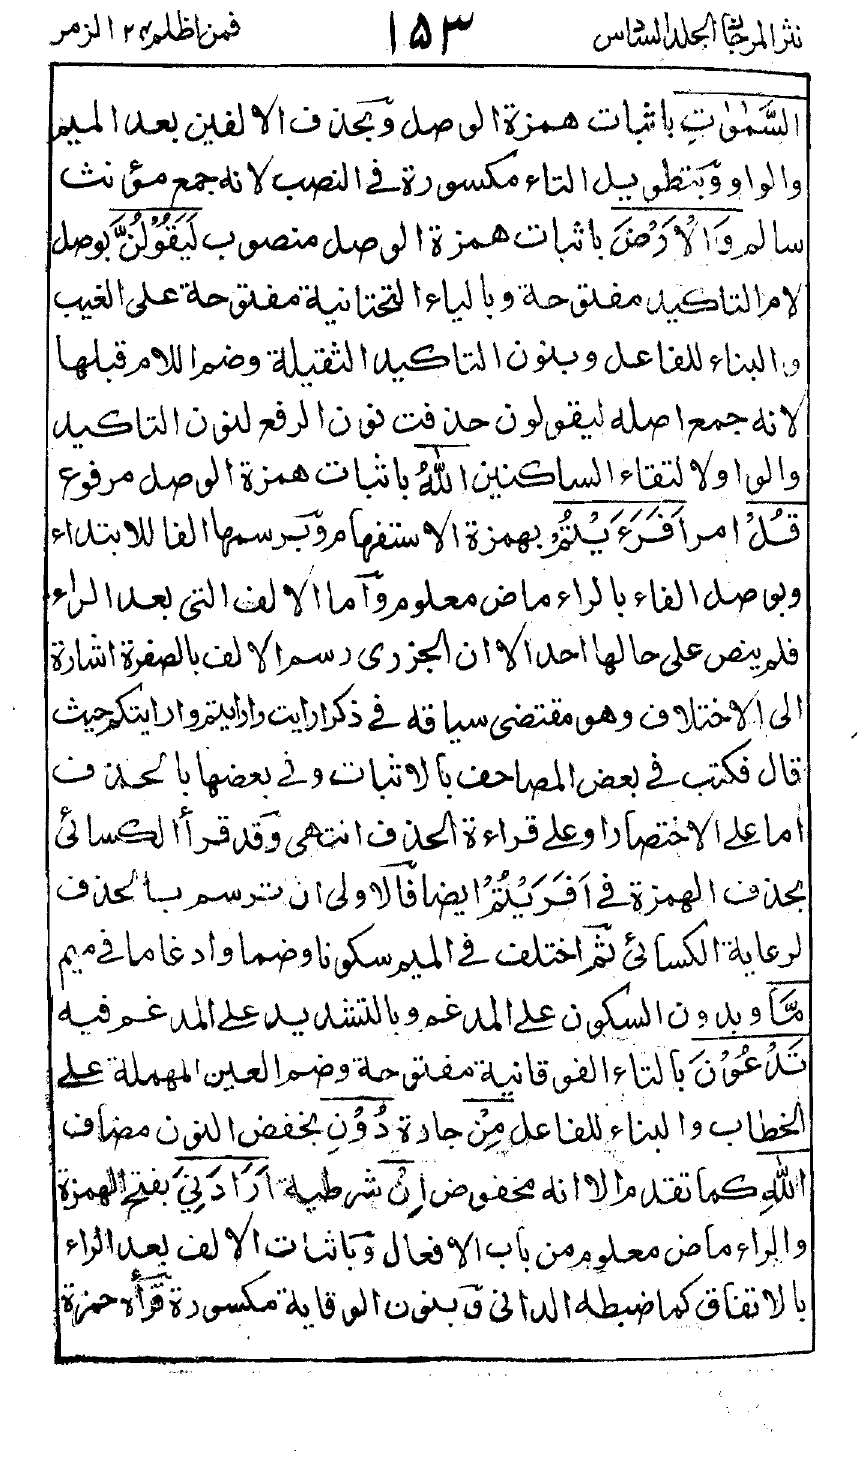 نثر المرجان المجلد السادس ١٥٣ فمن اظلم ٢٤ الزمر
السَّمٰوٰتِ باثبات همزة الوصل وبحذف الالفين بعد الميم
والواو وبتطويل التاء مكسورة في النصب لانه جمع مؤنث
سالم وَالْاَرْضَ باثبات همزة الوصل منصوب لَيَقُوْلُنَّ بوصل
لام التاكيد مفتوحة وبالياء التحتانية مفتوحة على الغيب
والبناء للفاعل وبنون التاكيد الثقيلة وضم اللام قبلها
لانه جمع اصله ليقولون حذفت نون الرفع لنون التاكيد
والواو لالتقاء الساكنين اللّٰهُ باثبات همزة الوصل مرفوع
قُلْ امر اَفَرَءَيْتُمْ بهمزة الاستفهام وبرسمها الفا للابتداء
وبوصل الفاء بالراء ماض معلوم وآما الالف التي بعد الراء
فلم ينص على حالها احد الا ان الجزرى رسم الالف بالصفرة اشارة
الى الاختلاف وهو مقتضى سياقه في ذكر ارايت وارايتم وارايتكم حيث
قال فكتب في بعض المصاحف بالاثبات وفي بعضها بالحذف
اما على الاختصار او على قراءة الحذف انتهى وقد قرأ الكسائي
بحذف الهمزة في اَفَرَيْتُمْ ايضا فالاولى ان ترسم بالحذف
لرعاية الكسائي ثم اختلف في الميم سكونا وضما وادغاما في ميم
مَّا وبدون السكون على المدغم وبالتشديد على المدغم فيه
تَدْعُوْنَ بالتاء الفوقانية مفتوحة وضم العين المهملة على
الخطاب والبناء للفاعل مِنْ جادة دُوْنِ بخفض النون مضاف
اللّٰهِ كما تقدم الا انه مخفوض اِنْ شرطية اَرَادَنِيَ بفتح الهمزة
والراء ماض معلوم من باب الافعال وباثبات الالف بعد الراء
بالاتفاق كما ضبطه الداني وبنون الوقاية مكسورة قرأه حمزة